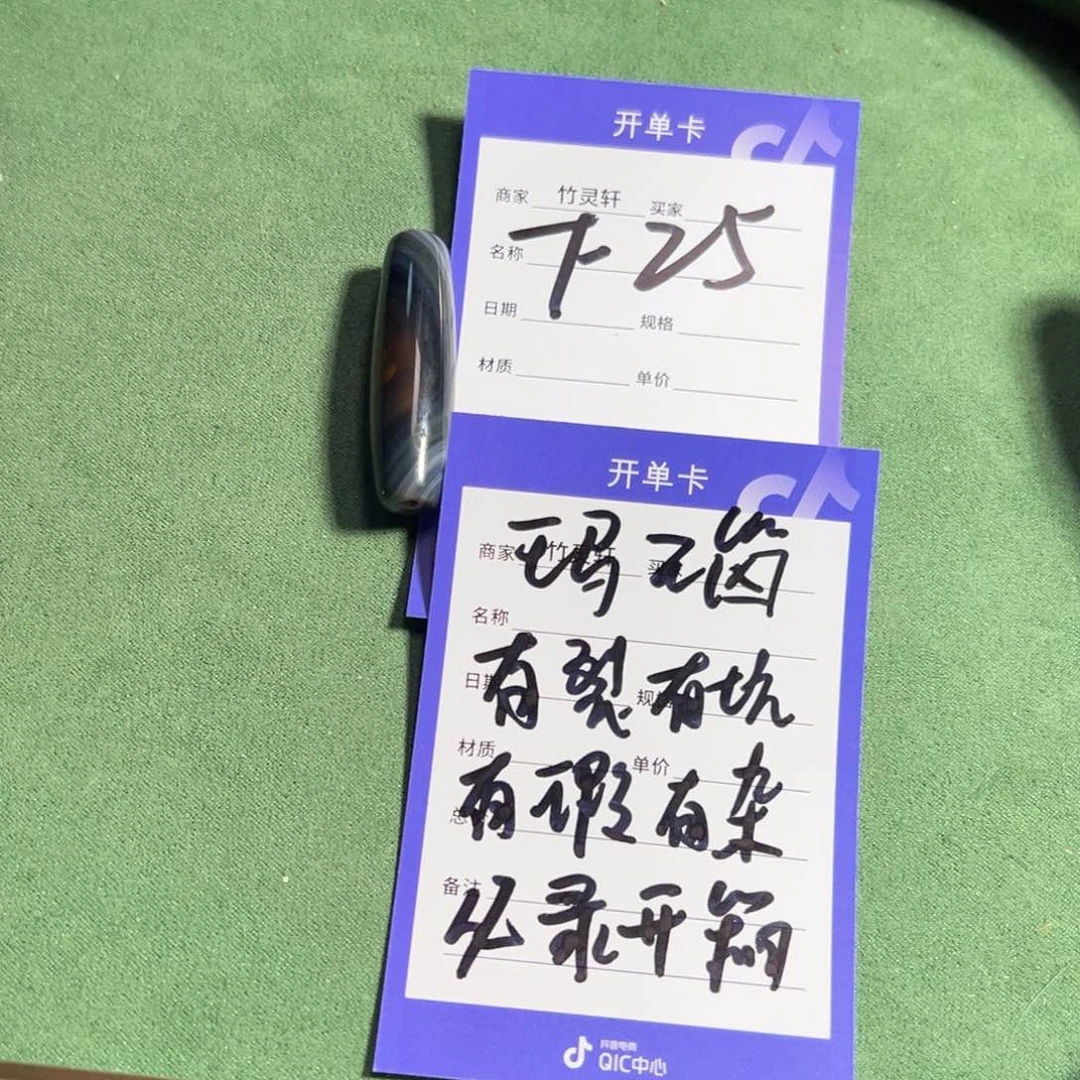 开单卡
商家 竹灵轩 买家
名称
下25
日期 规格
材质 单价
开单卡
商家 竹灵轩 买家
玛瑙
名称
有裂有坑
日期 规格
材质 单价
有瑕有杂
总
备注
必录开箱
抖音电商
QIC中心